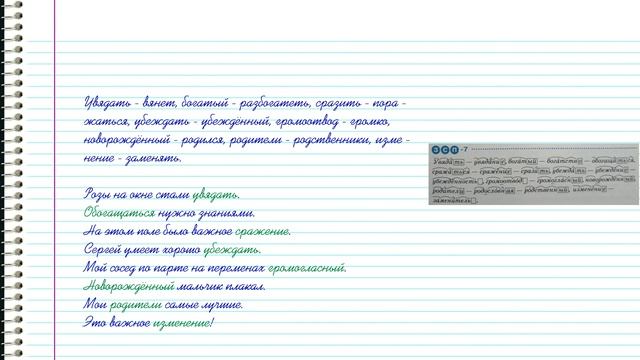 Увядать - вянет, богатый - разбогатеть, сразить - пора -
жаться, убеждать - убеждённый, громоотвод - громко,
новорождённый - родился, родители - родственники, изме -
нение - заменять.
Розы на окне стали увядать.
Обогащаться нужно знаниями.
На этом поле было важное сражение.
Сергей умеет хорошо убеждать.
Мой сосед по парте на переменах громогласный.
Новорождённый мальчик плакал.
Мои родители самые лучшие.
Это важное изменение!
ЗСП-7
Увядать — увядание, богатый — богатство — обогащаться,
сражаться — сражение — сразить, убеждать — убеждение —
убеждённость, громоотвод — громогласный, новорождённый,
родители — родословная — родственный, изменение —
заменитель.